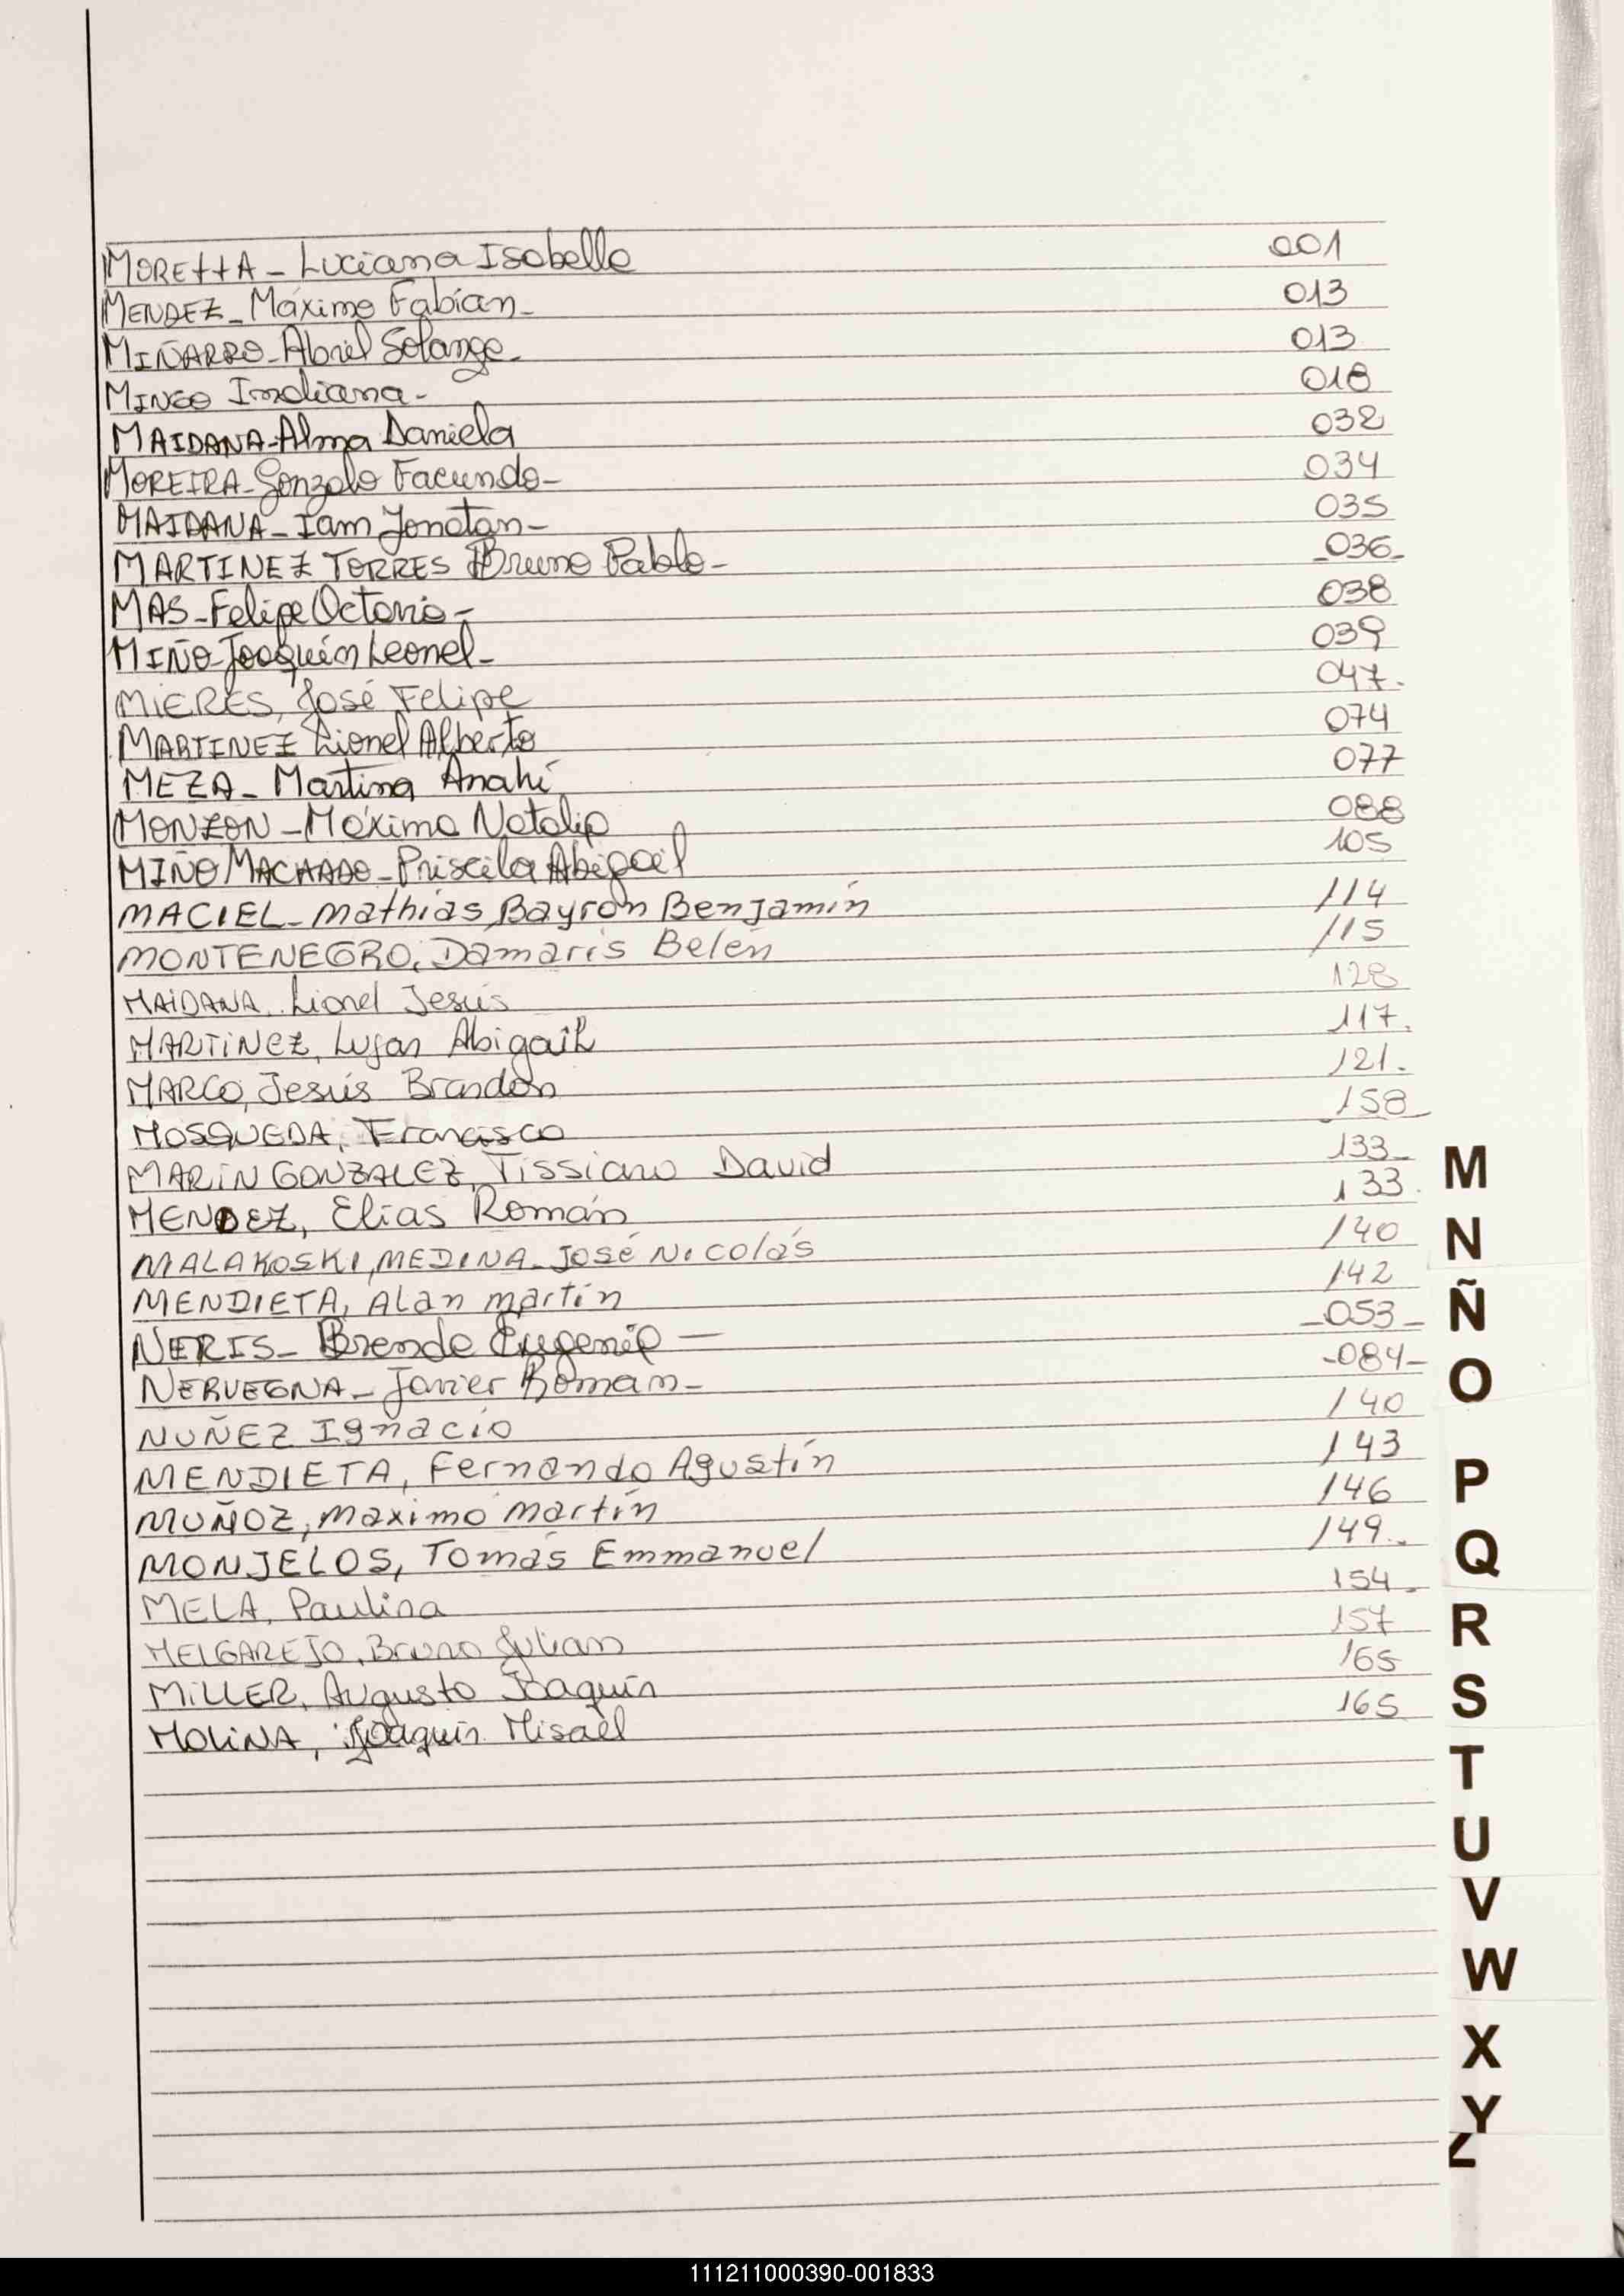 MORETTA - Luciana Isabella 001
MENDEZ - Máximo Fabían - 013
MIÑARRO - Abril Solange - 013
MINGO Indiana - 018
MAIDANA - Alma Daniela 032
MOREIRA - Gonzalo Facundo - 034
MAIDANA - Iam Jonatan - 035
MARTINEZ TORRES Bruno Pablo - 036
MAS - Felipe Octavio - 038
MIÑO - Joaquín Leonel - 039
MIERES, José Felipe 047.
MARTINEZ Lionel Alberto 074
MEZA - Martina Anahí 077
MONZON - Máximo Natalio 088
MIÑO MACHADO - Priscila Abigail 105
MACIEL - Mathias Bayron Benjamín 114
MONTENEGRO, Damaris Belén 115
MAIDANA, Lionel Jesús 128
MARTINEZ, Lujan Abigail 117.
MARCO, Jesús Brandon 121.
MOSQUEDA, Francisco 158
MARIN GONZALEZ, Tissiano David 133
MENDEZ, Elias Román 133.
MALAKOSKI, MEDINA - José Nicolás 140
MENDIETA, Alan martín 142
NERIS - Brenda Eugenia — 053
NERVEGNA - Javier Roman - 084
NUÑEZ Ignacio 140
MENDIETA, Fernando Agustín 143
MUÑOZ, maximo martín 146
MONJELOS, Tomás Emmanuel 149
MELA, Paulina 154
MELGAREJO, Bruno Julian 157
MILLER, Augusto Joaquin 165
MOLINA, Joaquin Misael 165
M
N
Ñ
O
P
Q
R
S
T
U
V
W
X
Y
Z
111211000390-001833